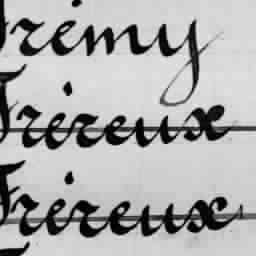 Frémy
Fréreux
Fréreux